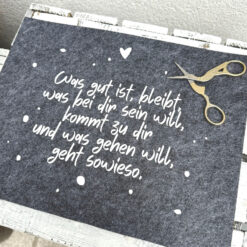 Was gut ist, bleibt,
was bei dir sein will,
kommt zu dir
und was gehen will,
geht sowieso.